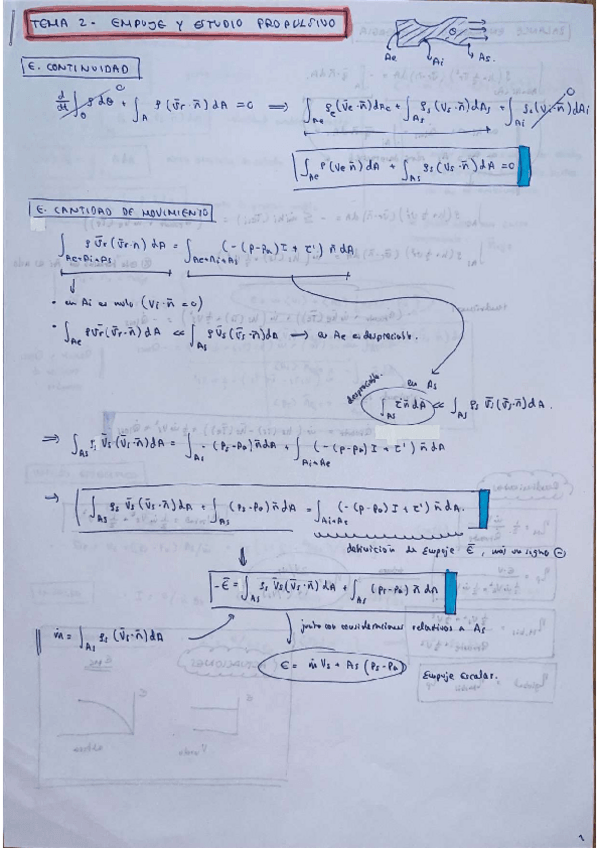 TEMA 2 - EMPUJE Y ESTUDIO PROPULSIVO
θ
Ae Ai As.
E. CONTINUIDAD
d/dt ∫_θ ρ dθ + ∫_A ρ (v̄r · n̄) dA = 0 ⟹ ∫_Ae ρe (Ve · n̄) dAe + ∫_As ρs (Vs · n̄) dAs + ∫_Ai ρi (Vi · n̄) dAi
0 0
∫_Ae ρ (Ve n̄) dA + ∫_As ρs (Vs · n̄) dA = 0
E. CANTIDAD DE MOVIMIENTO
∫_Ae+Ai+As ρ v̄r (v̄r · n) dA = ∫_Ae+Ai+As (-(p-pa) I + τ') n̄ dA
• en Ai es nulo (Vi · n̄ = 0)
• ∫_Ae ρ v̄r (v̄r · n̄) dA ≪ ∫_As ρ v̄s (v̄s · n̄) dA ⟶ en Ae es despreciable.
despreciable.
en As
∫_As τ' n̄ dA ≪ ∫_As ρs v̄s (v̄s · n̄) dA.
⟹ ∫_As ρs v̄s (v̄s · n̄) dA = ∫_As - (ps-pa) n̄ dA + ∫_Ai+Ae (-(p-pa) I + τ') n̄ dA
→ ∫_As ρs v̄s (v̄s · n̄) dA + ∫_As (ps-pa) n̄ dA = ∫_Ai+Ae (-(p-pa) I + τ') n̄ dA.
definición de Empuje Ē, más un signo ⊖
-Ē = ∫_As ρs v̄s (v̄s · n̄) dA + ∫_As (ps-pa) n̄ dA
ṁ = ∫_As ρs (v̄s · n̄) dA
junto con consideraciones relativas a As
E = ṁ Vs + As (ps-pa)
Empuje escalar.
1